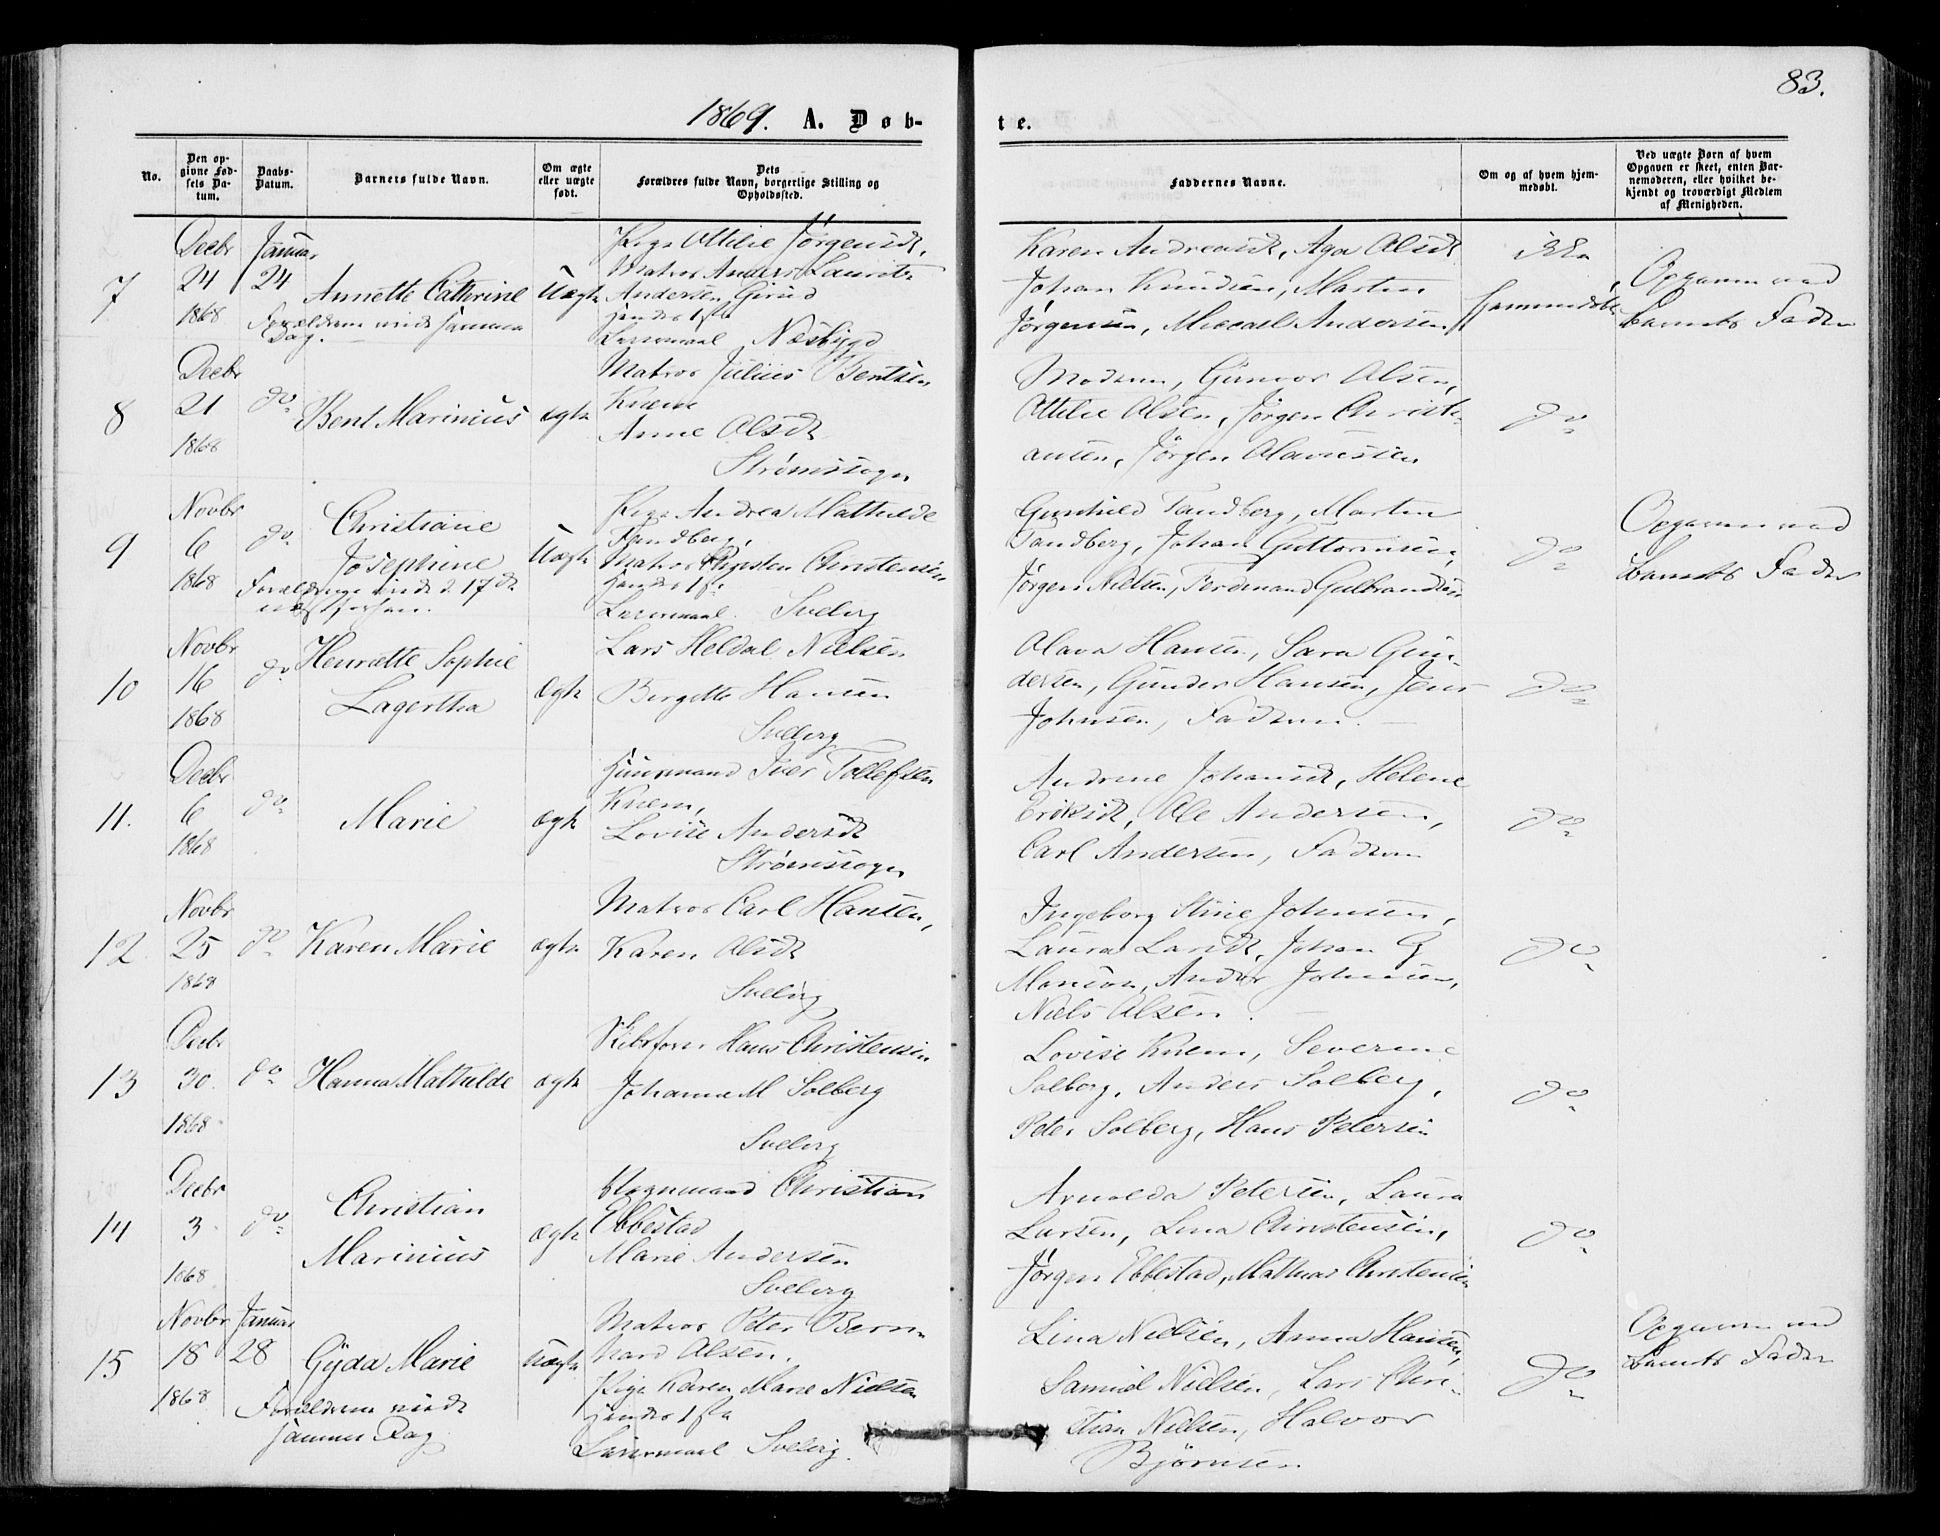 83.
1869. A. Døb-
te.
No.
Den op-
givne Fød-
sels Da-
tum.
Daabs-
Datum.
Barnets fulde Navn.
Om ægte
eller uægte
født.
Dets
Forældres fulde Navn, borgerlige Stilling og
Opholdssted.
Faddernes Navne.
Om og af hvem hjem-
medøbt.
Ved uægte Børn af hvem
Opgaven er skeet, enten Bar-
nemoderen, eller hvilket be-
kjendt og troværdigt Medlem
af Menigheden.
7
Decbr
24
1868
Januar
24
Annette Cathrine
Forældrene viede samme
Dag.
Uægte
Pige Ottilie Jørgensdt,
Matros Anders Lauritz
Andersen Girud
hendes 1ste
Leiermaal Næsbygd
Karen Andreasdt, Aga Olsdt
Johan Knudsen, Morten
Jørgensen, Micael Andersen
ikke
hjemmedøbt
Opgaven ved
Barnets Fader
8
Decbr
21
1868
do
Bent Marinius
ægte
Matros Julius Bentsen
Knem
Anne Olsdt
Strømssogn
Modren, Gunvor Olsen,
Ottilie Olsen, Jørgen Christi-
ansen, Jørgen Olavessen
do
9
Novbr
6
1868
do
Christiane
Josephine
Forældrene viede d. 17de
næstforhen.
Uægte
Pige Andrea Mathilde
Tandberg,
Matros Christen Christensen
hendes 1ste
Leiermaal. Svelvig
Gunhild Tandberg, Morten
Tandberg, Johan Guttormsen,
Jørgen Nielsen, Ferdinand Gulbrandsen
do
Opgaven ved
Barnets Fader
10
Novbr
16
1868
do
Henriette Sophie
Lagertha
ægte
Lars Heldal Nielsen
Birgitte Hansen
Svelvig
Olava Hansen, Sara Gun-
dersen, Gunder Hansen, Jens
Johnsen, Fadren.
do
11.
Decbr
6
1868
do
Marie
ægte
Huusmand Iver Tollefsen
Knem,
Lovise Andersdt
Strømssogn
Andrine Johansdt, Helene
Eriksdt, Ole Andersen,
Carl Andersen, Fadren
do
12.
Novbr
25
1868
do
Karen Marie
ægte
Matros Carl Hansen,
Karen Olsdt
Svelvig
Ingeborg Stine Johnsen,
Laura Larsdt, Johan G
Monson, Anders Johnsen,
Niels Olsen.
do
13
Decbr
30.
1868
do
Hanna Mathilde
ægte
Skibsfører Hans Christensen
Johanne M Solberg
Svelvig
Lovise Knem, Severine
Solberg, Anders Solberg,
Peter Solberg, Hans Petersen
do
14
Decbr
3
1868
do
Christian
Marinius
ægte
Vognmand Christian
Ebbestad
Marie Andersen
Svelvig
Arnolda Petersen, Laura
Larsen, Lina Christensen,
Jørgen Ebbestad, Mathias Christensen
do
15
Novbr
18
1868
Januar
28
Gyda Marie
Forældrene viede
samme Dag
Uægte
Matros Peter Bern-
hard Olsen.
Pige Karen Marie Nielsen
hendes 1ste
Leiermaal Svelvig.
Lina Nielsen, Anna Hansen,
Samuel Nielsen, Lars Chri-
stian Nielsen, Halvor
Bjørnsen
do
Opgaven ved
Barnets Fader